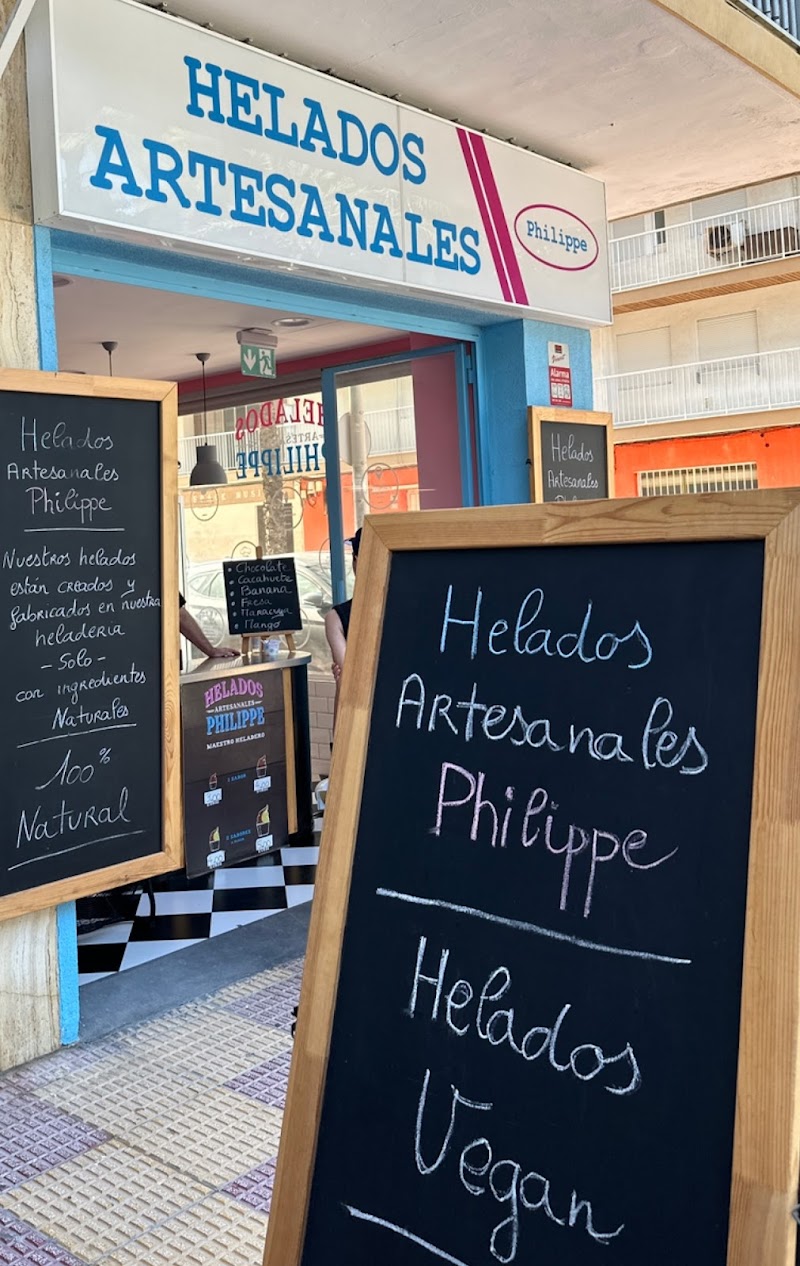 HELADOS
ARTESANALES
Philippe
Helados
Artesanales
Philippe
Nuestros helados
están creados y
fabricados en nuestra
heladería
- Solo -
con ingredientes
Naturales
100%
Natural
HELADOS
PHILIPPE
Chocolate
Cacahuete
Banana
Fresa
Maracuya
Mango
HELADOS
ARTESANALES
PHILIPPE
MAESTRO HELADERO
1 SABOR
2 SABORES
Alarma
Helados
Artesanales
Helados
Artesanales
Philippe
Helados
Vegan